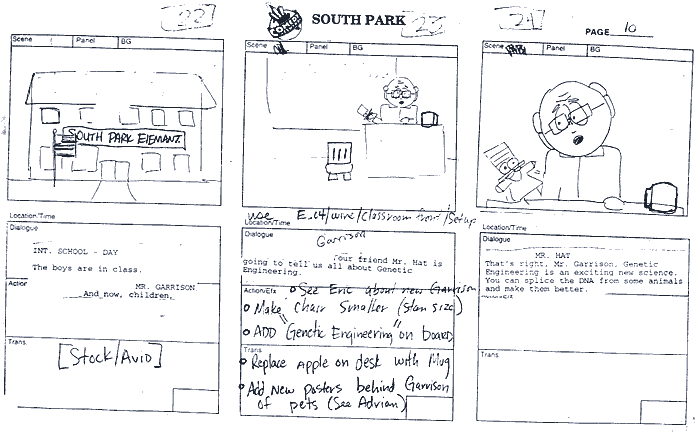 22
SOUTH PARK
23
24
PAGE 10
Scene
Panel
BG
SOUTH PARK ELEMANT.
Location/Time
Dialogue
INT. SCHOOL - DAY
The boys are in class.
Action
MR. GARRISON
And now, children,
Trans
[Stock/Avid]
Scene
Panel
BG
use E.04/wine/classroom front/setup
Location/Time
Dialogue
Garrison
our friend Mr. Hat is
going to tell us all about Genetic
Engineering.
Action/Efx
o See Eric about new Garrison
o Make chair smaller (Stan size)
o ADD "Genetic Engineering" on board
Trans
o Replace apple on desk with Mug
o Add New posters behind Garrison
of pets (See Adrian)
Scene
Panel
BG
Location/Time
Dialogue
MR. HAT
That's right, Mr. Garrison. Genetic
Engineering is an exciting new science.
You can splice the DNA from some animals
and make them better.
Action/Efx
Trans